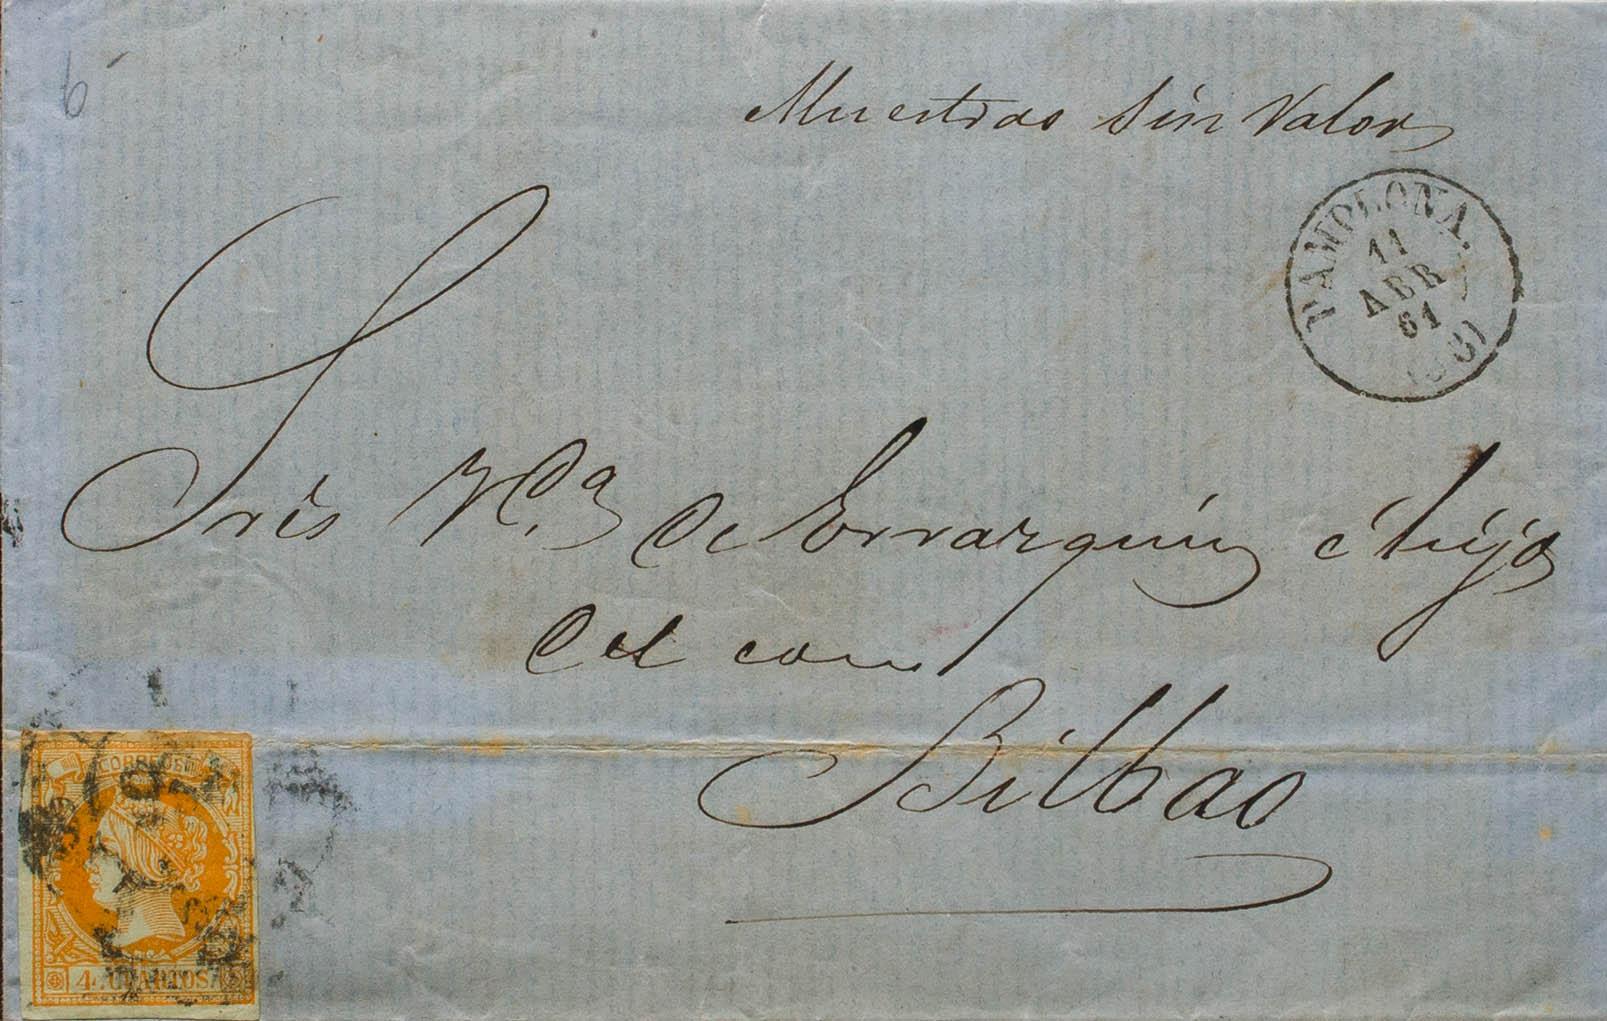 6
Muestras sin valor
PAMPLONA.
11
ABR
61
Sres Vda de Errazquin é hijo
del com
Bilbao
CORREOS
4 CUARTOS